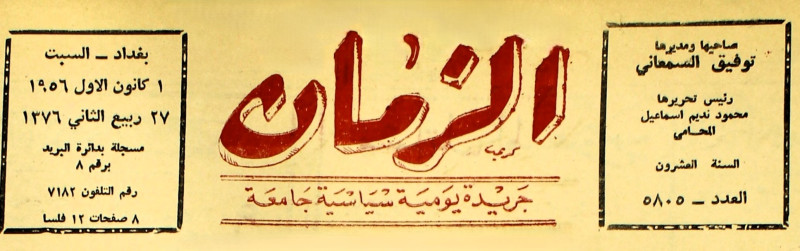 صاحبها ومديرها
توفيق السمعاني
رئيس تحريرها
محمود نديم اسماعيل
المحامي
السنة العشرون
العدد ــ ٥٨٠٥
الزمان
جريدة يومية سياسية جامعة
بغداد ــ السبت
١ كانون الاول ١٩٥٦
٢٧ ربيع الثاني ١٣٧٦
مسجلة بدائرة البريد
برقم ٨
رقم التلفون ٧١٨٢
٨ صفحات ١٢ فلسا